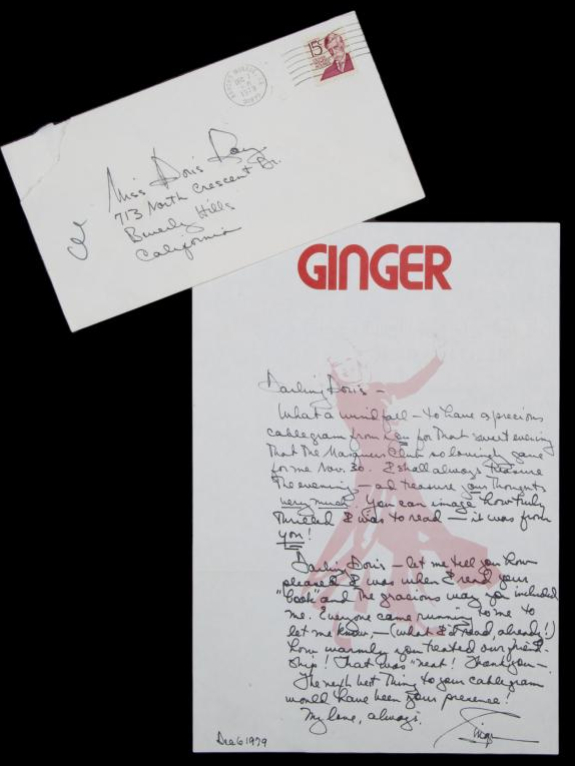 15
Miss Doris Day
713 North Crescent Dr.
Beverly Hills
California
GINGER
Darling Doris –
What a windfall – to have a precious
cablegram from you for that sweet evening
that the Masquers Club so lovingly gave
for me Nov. 30. I shall always treasure
the evening – and treasure your thoughts
very much! You can image how truly
thrilled I was to read — it was from
you!
Darling Doris – let me tell you how
pleased I was when I read your
"book" and the gracious way you included
me. Everyone came running to me to
let me know, – (what I'd read, already!)
how warmly you treated our friend-
ship! That was "neat"! Thank you –
The next best thing to your cablegram
would have been your presence!
My love, always.
Ginger
Dec 6 1979